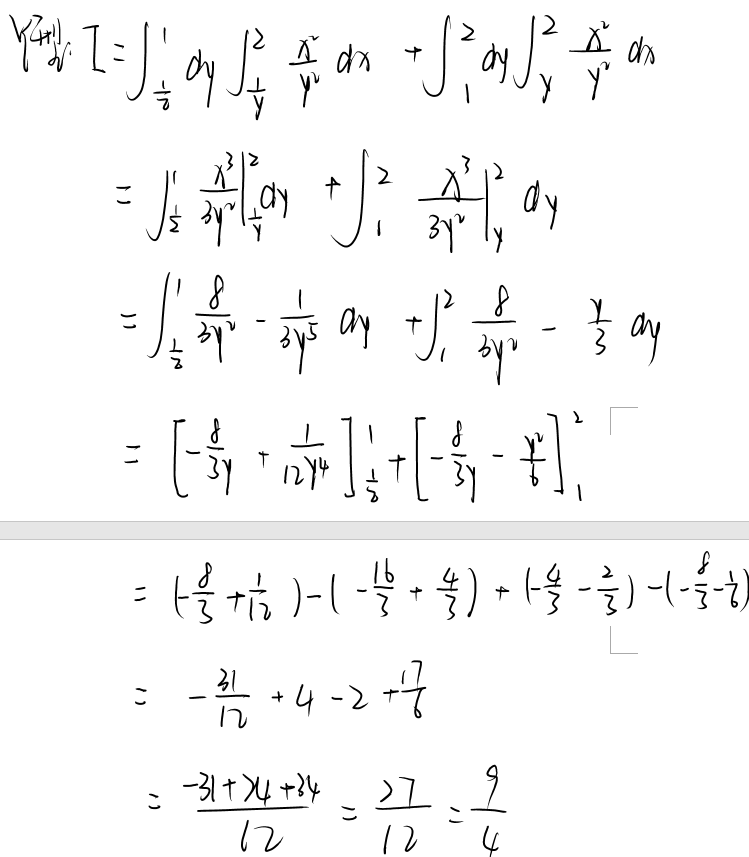 Y型: I = ∫_{1/2}^{1} dy ∫_{1/y}^{2} x²/y² dx + ∫_{1}^{2} dy ∫_{y}^{2} x²/y² dx
= ∫_{1/2}^{1} x³/3y² |_{1/y}^{2} dy + ∫_{1}^{2} x³/3y² |_{y}^{2} dy
= ∫_{1/2}^{1} 8/3y² - 1/3y⁵ dy + ∫_{1}^{2} 8/3y² - y/3 dy
= [-8/3y + 1/12y⁴]_{1/2}^{1} + [-8/3y - y²/6]_{1}^{2}
= (-8/3 + 1/12) - (-16/3 + 4/3) + (-4/3 - 2/3) - (-8/3 - 1/6)
= -31/12 + 4 - 2 + 17/6
= (-31+24+34)/12 = 27/12 = 9/4